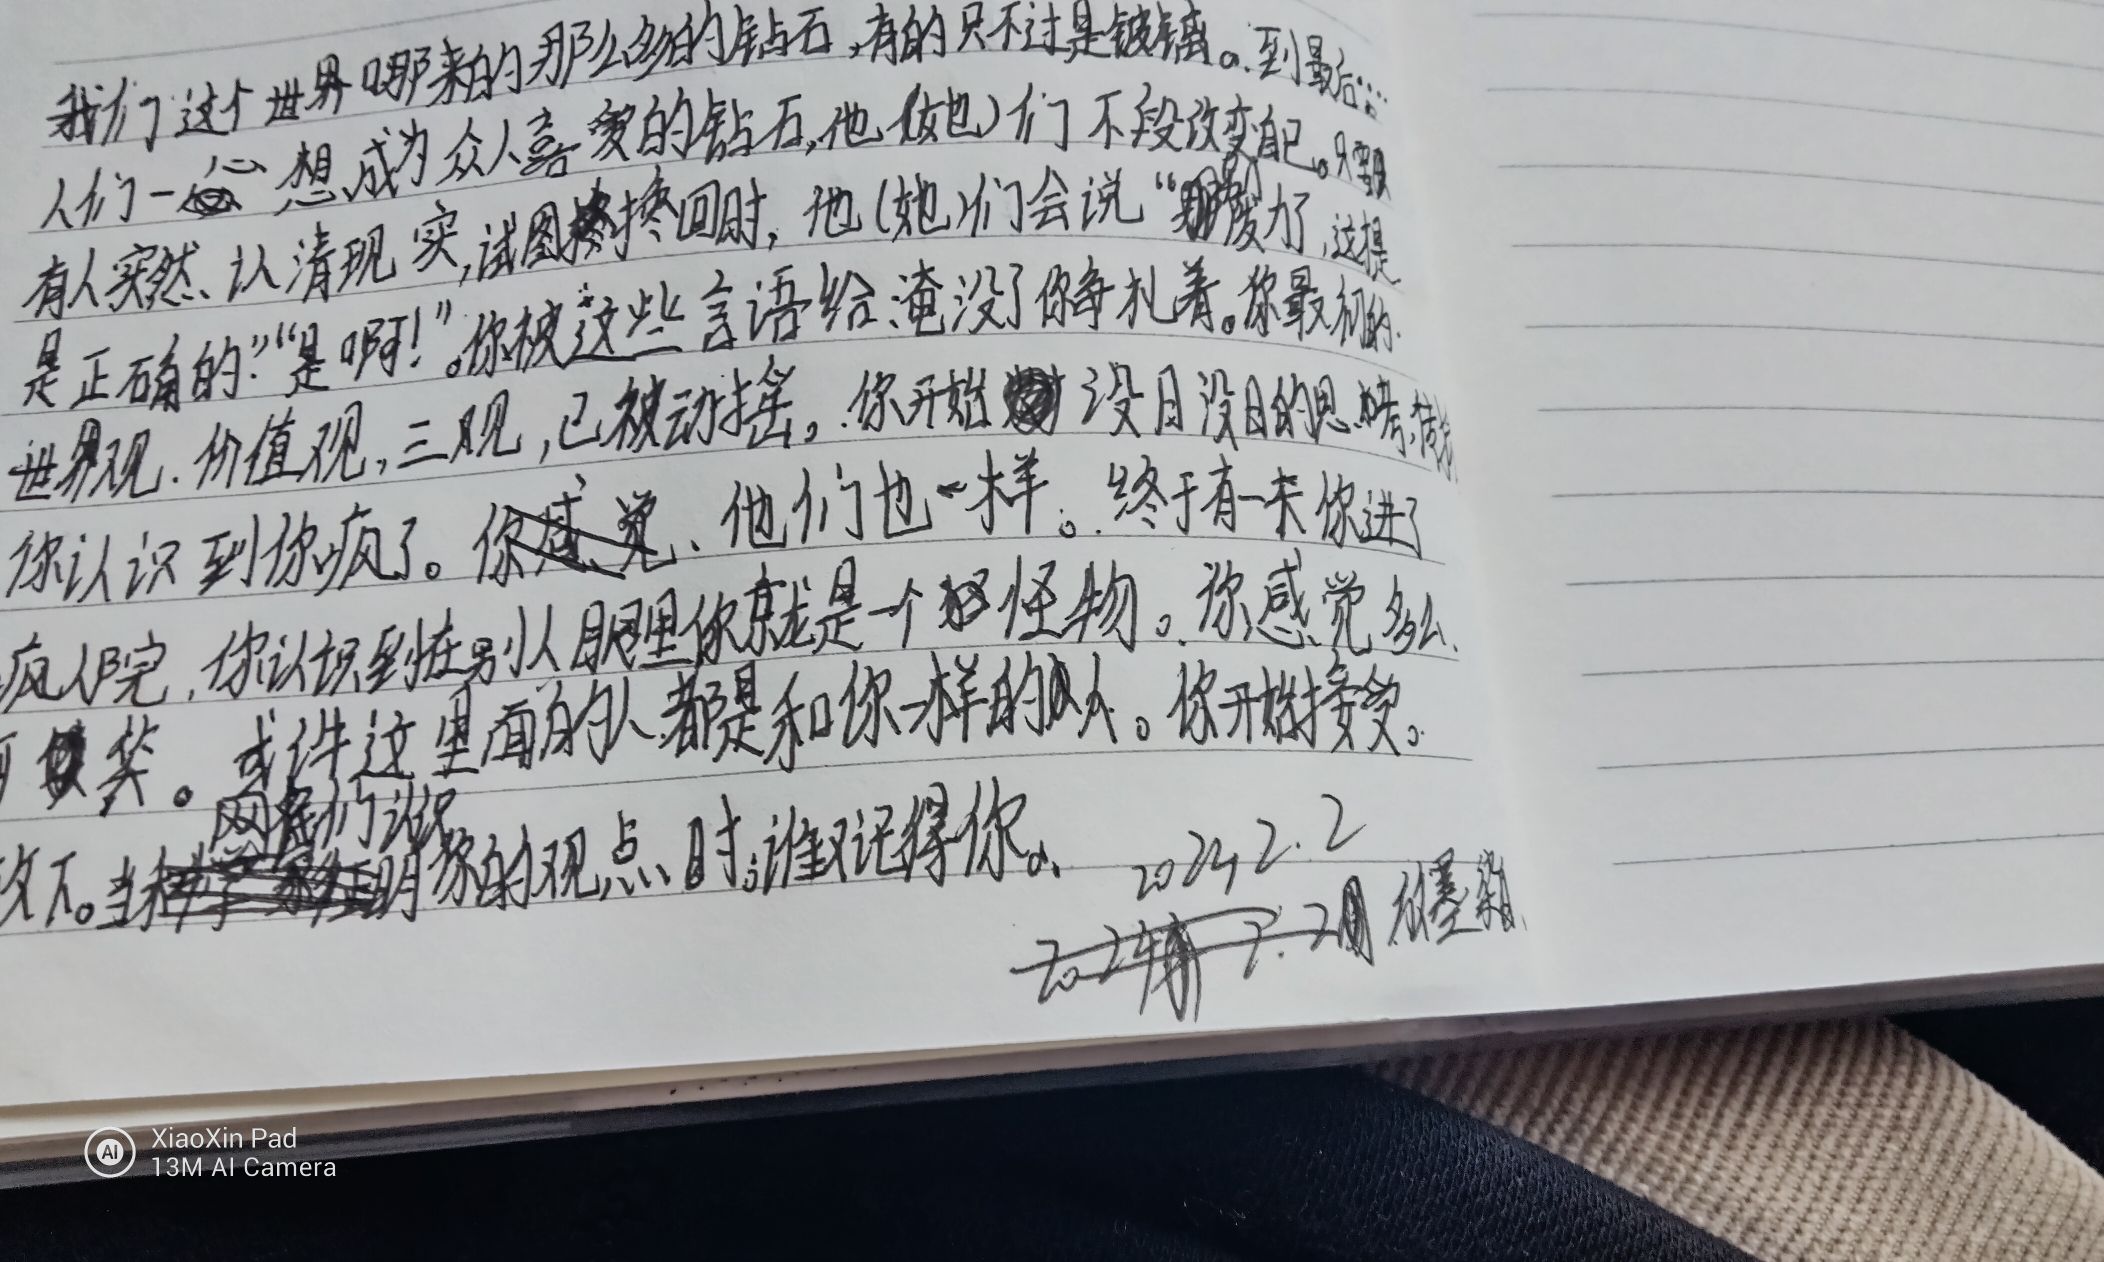 我们这个世界哪来的那么多的钻石,有的只不过是玻璃。到最后……
人们一心想成为众人喜爱的钻石,他(她)们不段改变自己。只要
有人突然认清现实,试图挽回时,他(她)们会说“别废力了,这是
是正确的”“是啊!”。你被这些言语给淹没了你争扎着。你最初的
世界观.价值观,三观,已被动摇。你开始没日没日的思考,
你认识到你疯了。你、他们也一样。终于有一天你进了
疯人院,你认识到在别人眼里你就是一个怪物。你感觉多么
可笑。或许这里面的人都是和你一样的人。你开始接受。
改下。当网友们认识
明你的观点时,谁又记得你。
2024 2.2
2024年 2.2